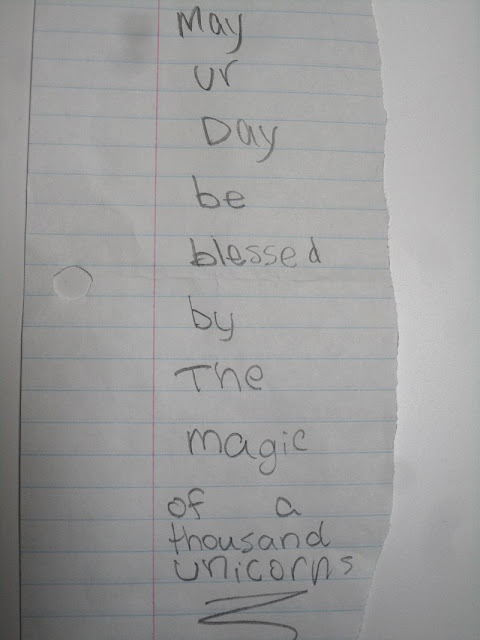 May
ur
Day
be
blessed
by
The
magic
of a
thousand
unicorns